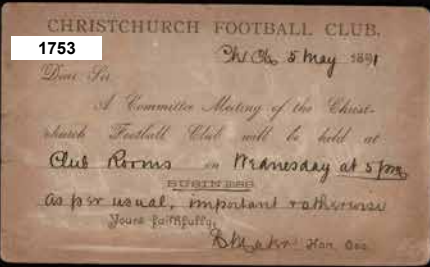 CHRISTCHURCH FOOTBALL CLUB,
1753
Ch Ch 5 May 1891
Dear Sir
A Committee Meeting of the Christ-
church Football Club will be held at
Club Rooms on Wednesday at 5 pm
BUSINESS
as per usual, important & otherwise
Yours faithfully,
Hon. Sec.